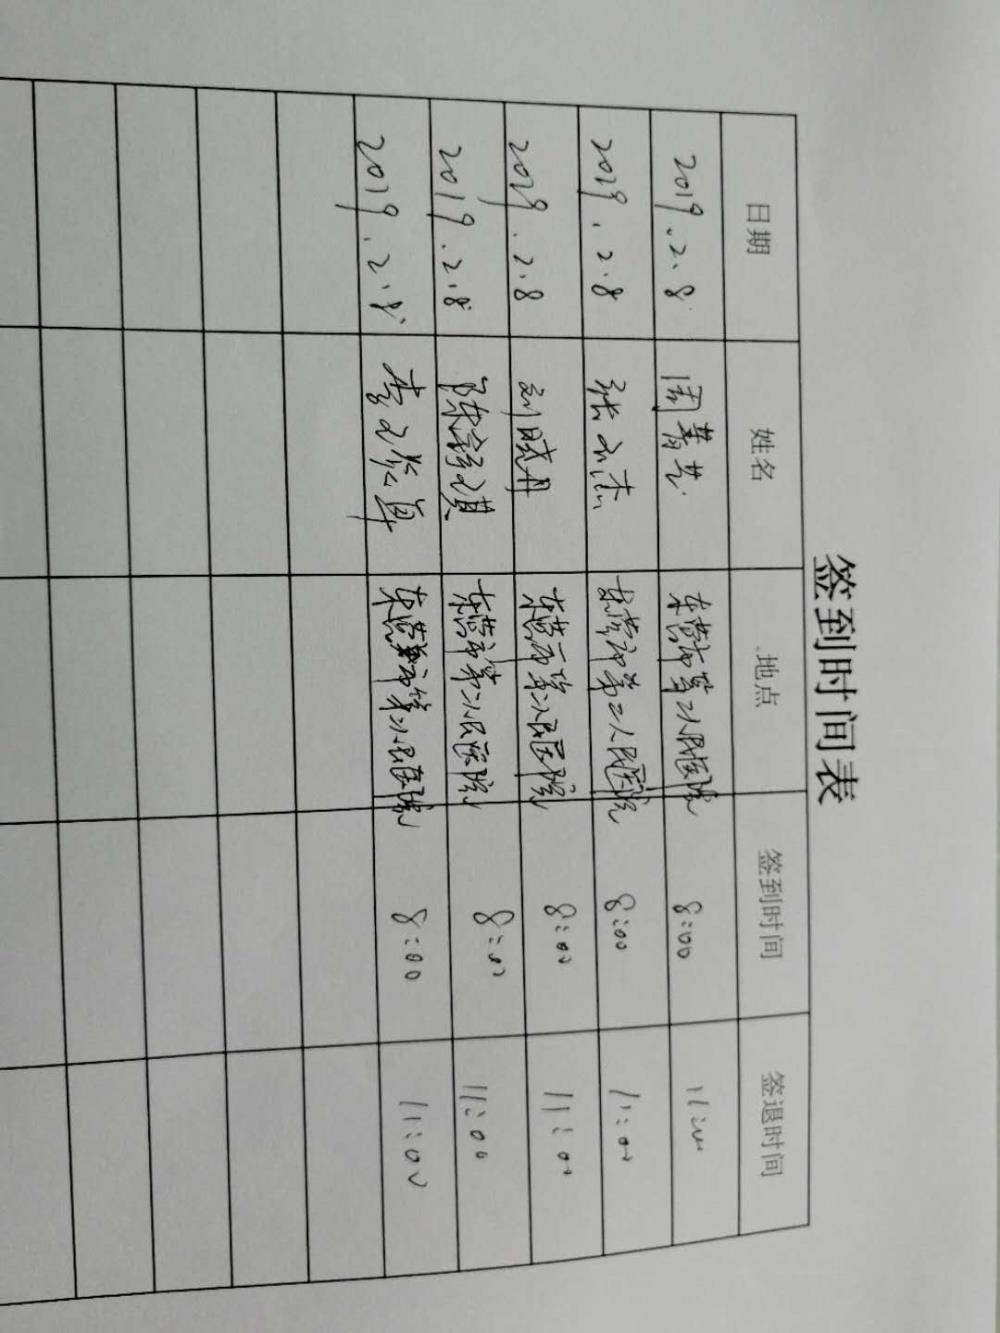 签到时间表
日期 姓名 地点 签到时间 签退时间
2019.2.8 周菁芸 东营市第二人民医院 8:00 11:00
2019.2.8 张志杰 东营市第二人民医院 8:00 11:00
2019.2.8 刘晓丹 东营市第二人民医院 8:00 11:00
2019.2.8 陈 东营市第二人民医院 8:00 11:00
2019.2.8 李 东营市第二人民医院 8:00 11:00